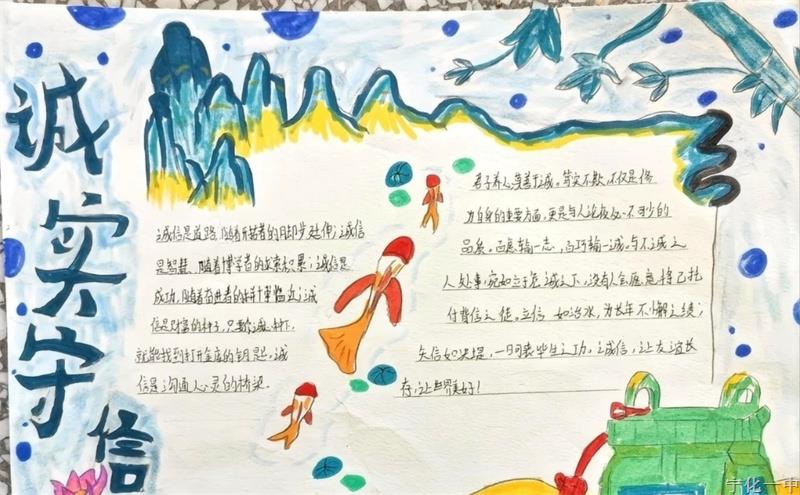 诚实守信
诚信是道路，随着开拓者的脚步延伸；诚信
是智慧，随着博学者的求索积累；诚信是
成功，随着奋进者的拼搏临近；诚
信是财富的种子，只要诚心种下，
就能找到打开金库的钥匙，诚
信是沟通心灵的桥梁。
君子养心莫善于诚。笃实不欺，不仅是修
为自身的重要方面，更是与人论及必不可少的
品质。百愚输一志，百巧输一诚。与不诚之
人处事，宛如立于危
付背信之徒。立信如治水，为长年不懈之绩；
失信如决堤，一日可丧毕生之功。让诚信，让友谊长
存，让世界美好！
宁化一中